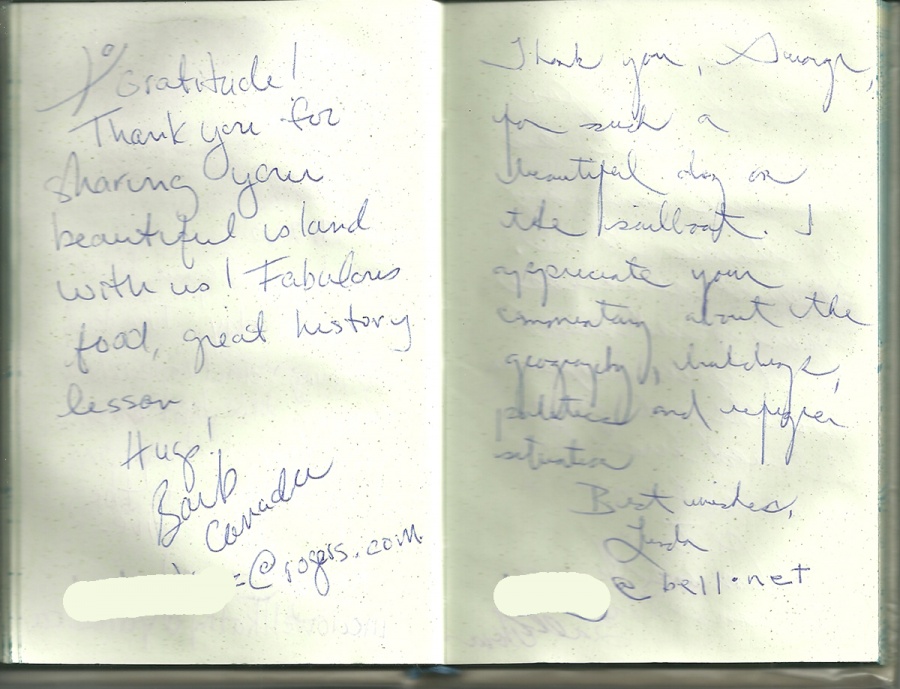 Gratitude!
Thank you for
sharing your
beautiful island
with us! Fabulous
food, great history
lesson
Hugs!
Barb
Canada
@rogers.com
Thank you,
for such a
beautiful day on
the sailboat. I
appreciate your
commentary about the
geography, buildings,
politics and refugee
situation
Best wishes,
Linda
@bell.net